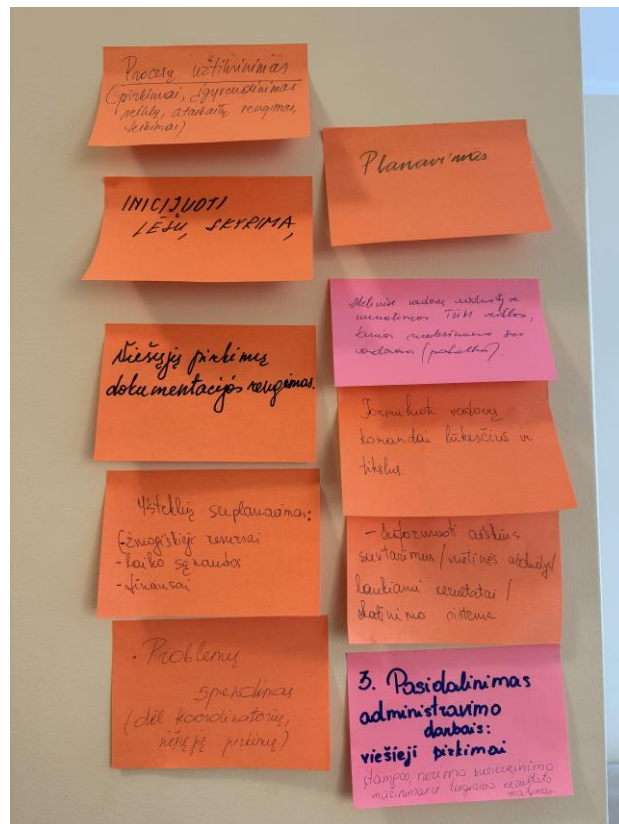 Procesų užtikrinimas
(pirkimai, įgyvendinimas
veiklų, ataskaitų rengimas,
teikimas)
INICIJUOTI
LĖŠŲ SKYRIMĄ,
Viešųjų pirkimų
dokumentacijos rengimas.
Išteklių suplanavimas:
-žmogiškieji resursai
-laiko sąnaudos
-finansai
- Problemų
sprendimas
(dėl koordinatorių,
viešųjų pirkimų)
Planavimas
vadovų
TŪM veiklos,
kurios
vadovams (pagalba).
Formuluoti vadovų
komandai lūkesčius ir
tikslus
- Suformuoti aiškius
susitarimus /
laukiami rezultatai /
skatinimo sistema
3. Pasidalinimas
administravimo
darbais:
viešieji pirkimai
įtampos, nerimo
mažinimas